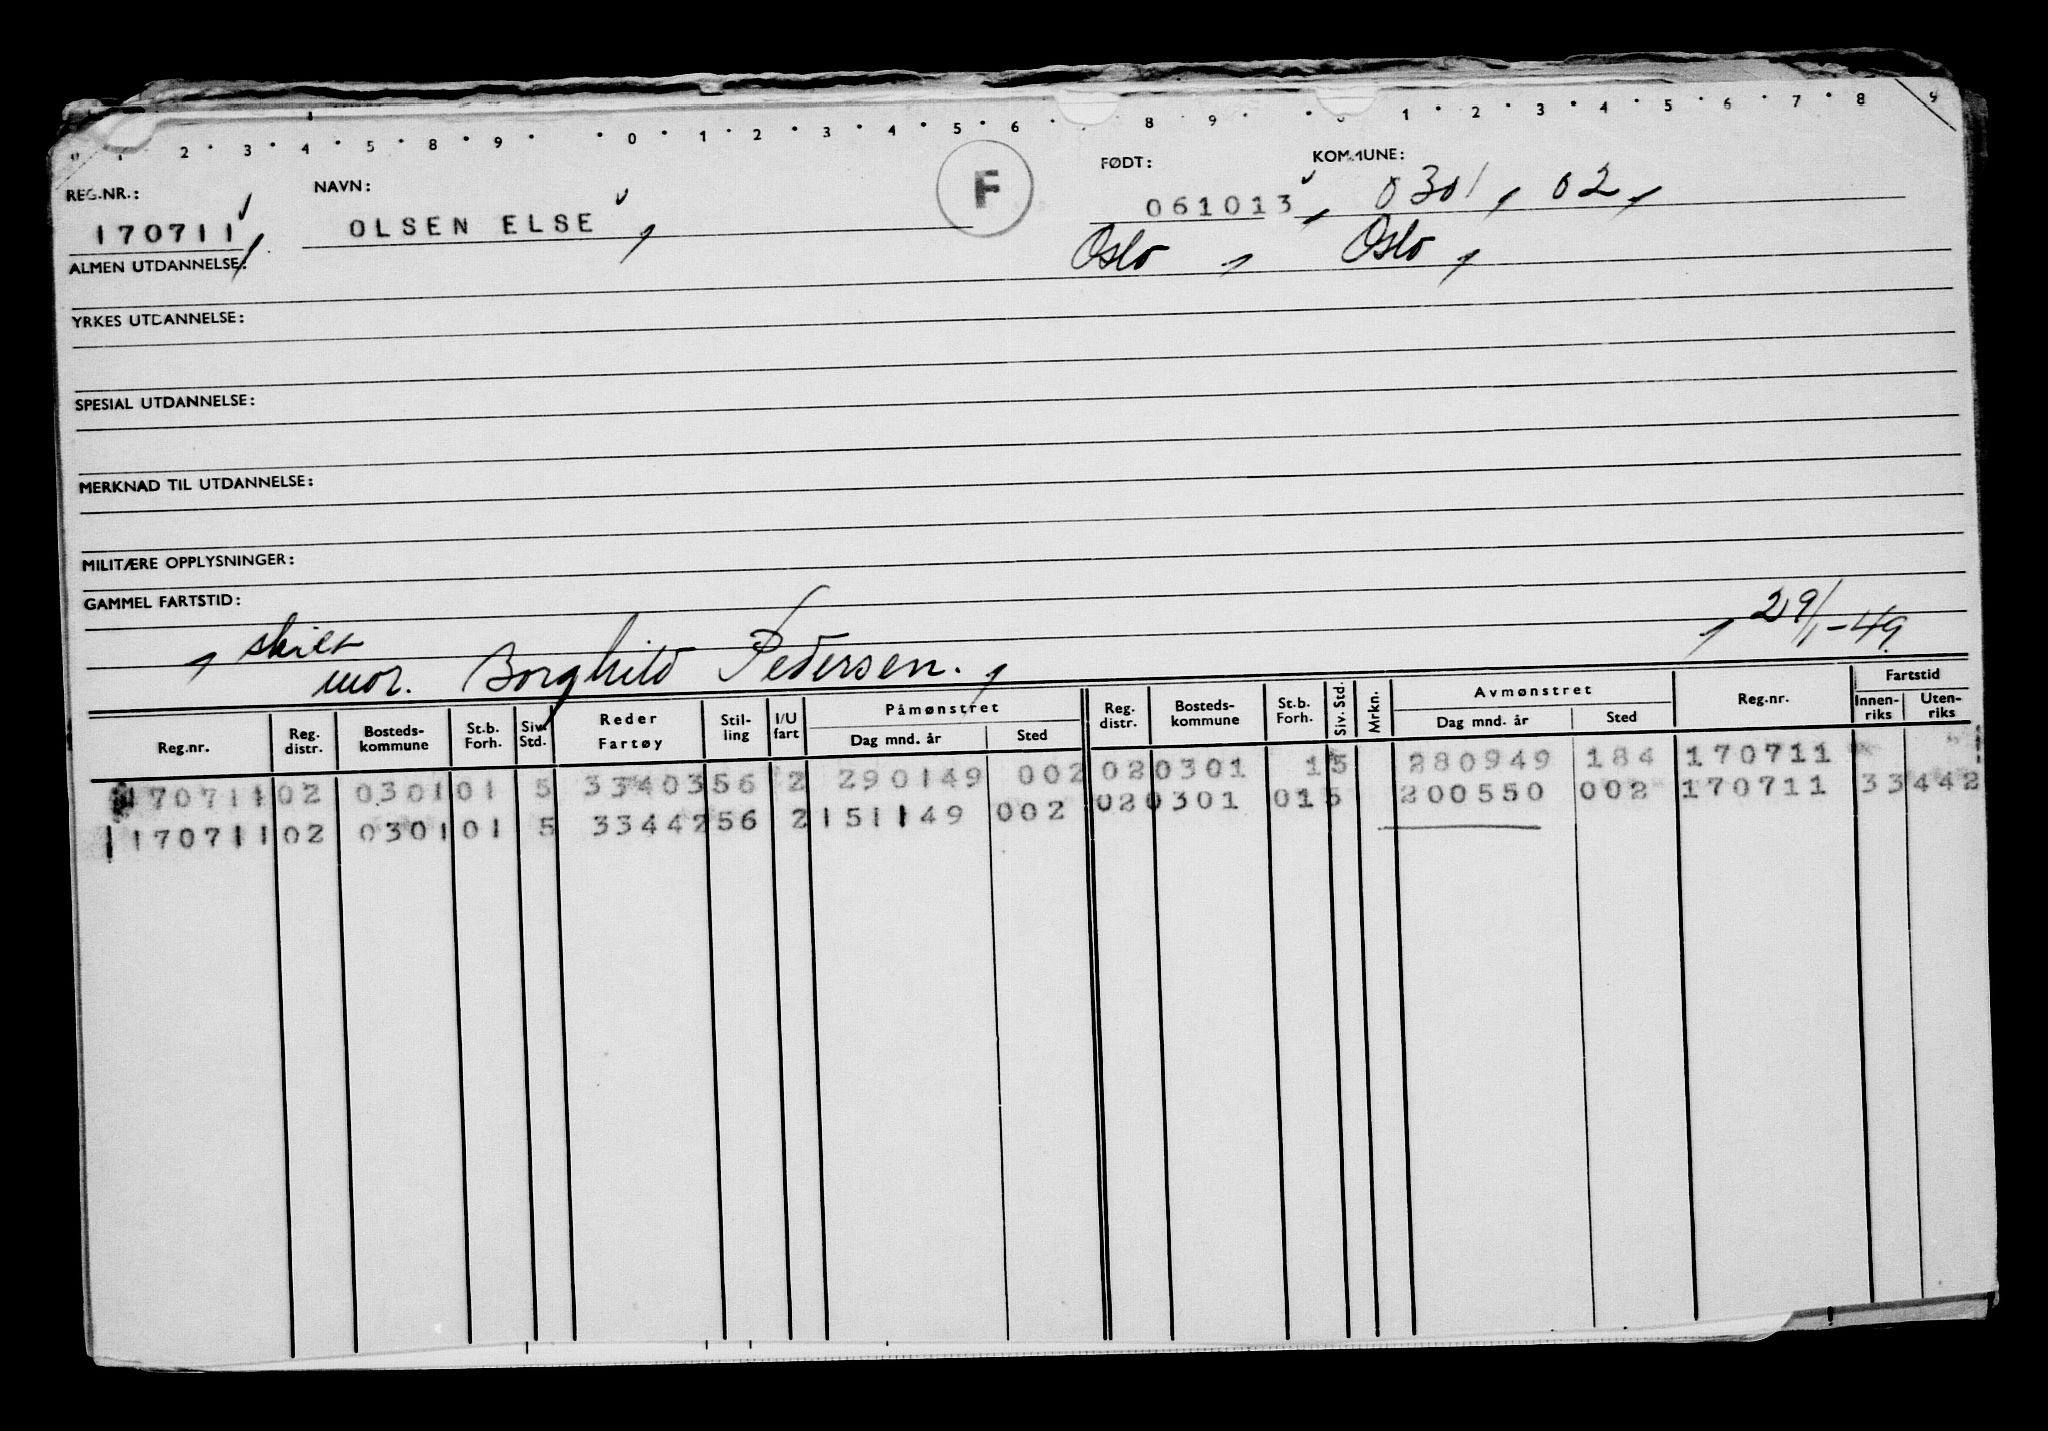 0 1 2 3 4 5 6 8 9 0 1 2 3 4 5 6 8 9 1 2 3 4 5 6 7 8 9
REG.NR.: NAVN: F FØDT: KOMMUNE:
170711 OLSEN ELSE 061013 0301, 02,
Oslo, Oslo,
ALMEN UTDANNELSE:
YRKES UTDANNELSE:
SPESIAL UTDANNELSE:
MERKNAD TIL UTDANNELSE:
MILITÆRE OPPLYSNINGER:
GAMMEL FARTSTID:
skilt 29/1-49
mor. Borghild Pedersen.
Reg.nr. Reg. distr. Bosteds-kommune St.b. Forh. Siv. Std. Reder Fartøy Stil-ling I/U fart Påmønstret Dag mnd. år Sted Reg. distr. Bosteds-kommune St.b. Forh. Siv. Std. Mrkn. Avmønstret Dag mnd. år Sted Reg.nr. Fartstid Innen-riks Uten-riks
170711 02 0301 01 5 33403 56 2 290149 002 02 0301 1 5 280949 184 170711
170711 02 0301 01 5 33442 56 2 151149 002 02 0301 01 5 200550 002 170711 33442